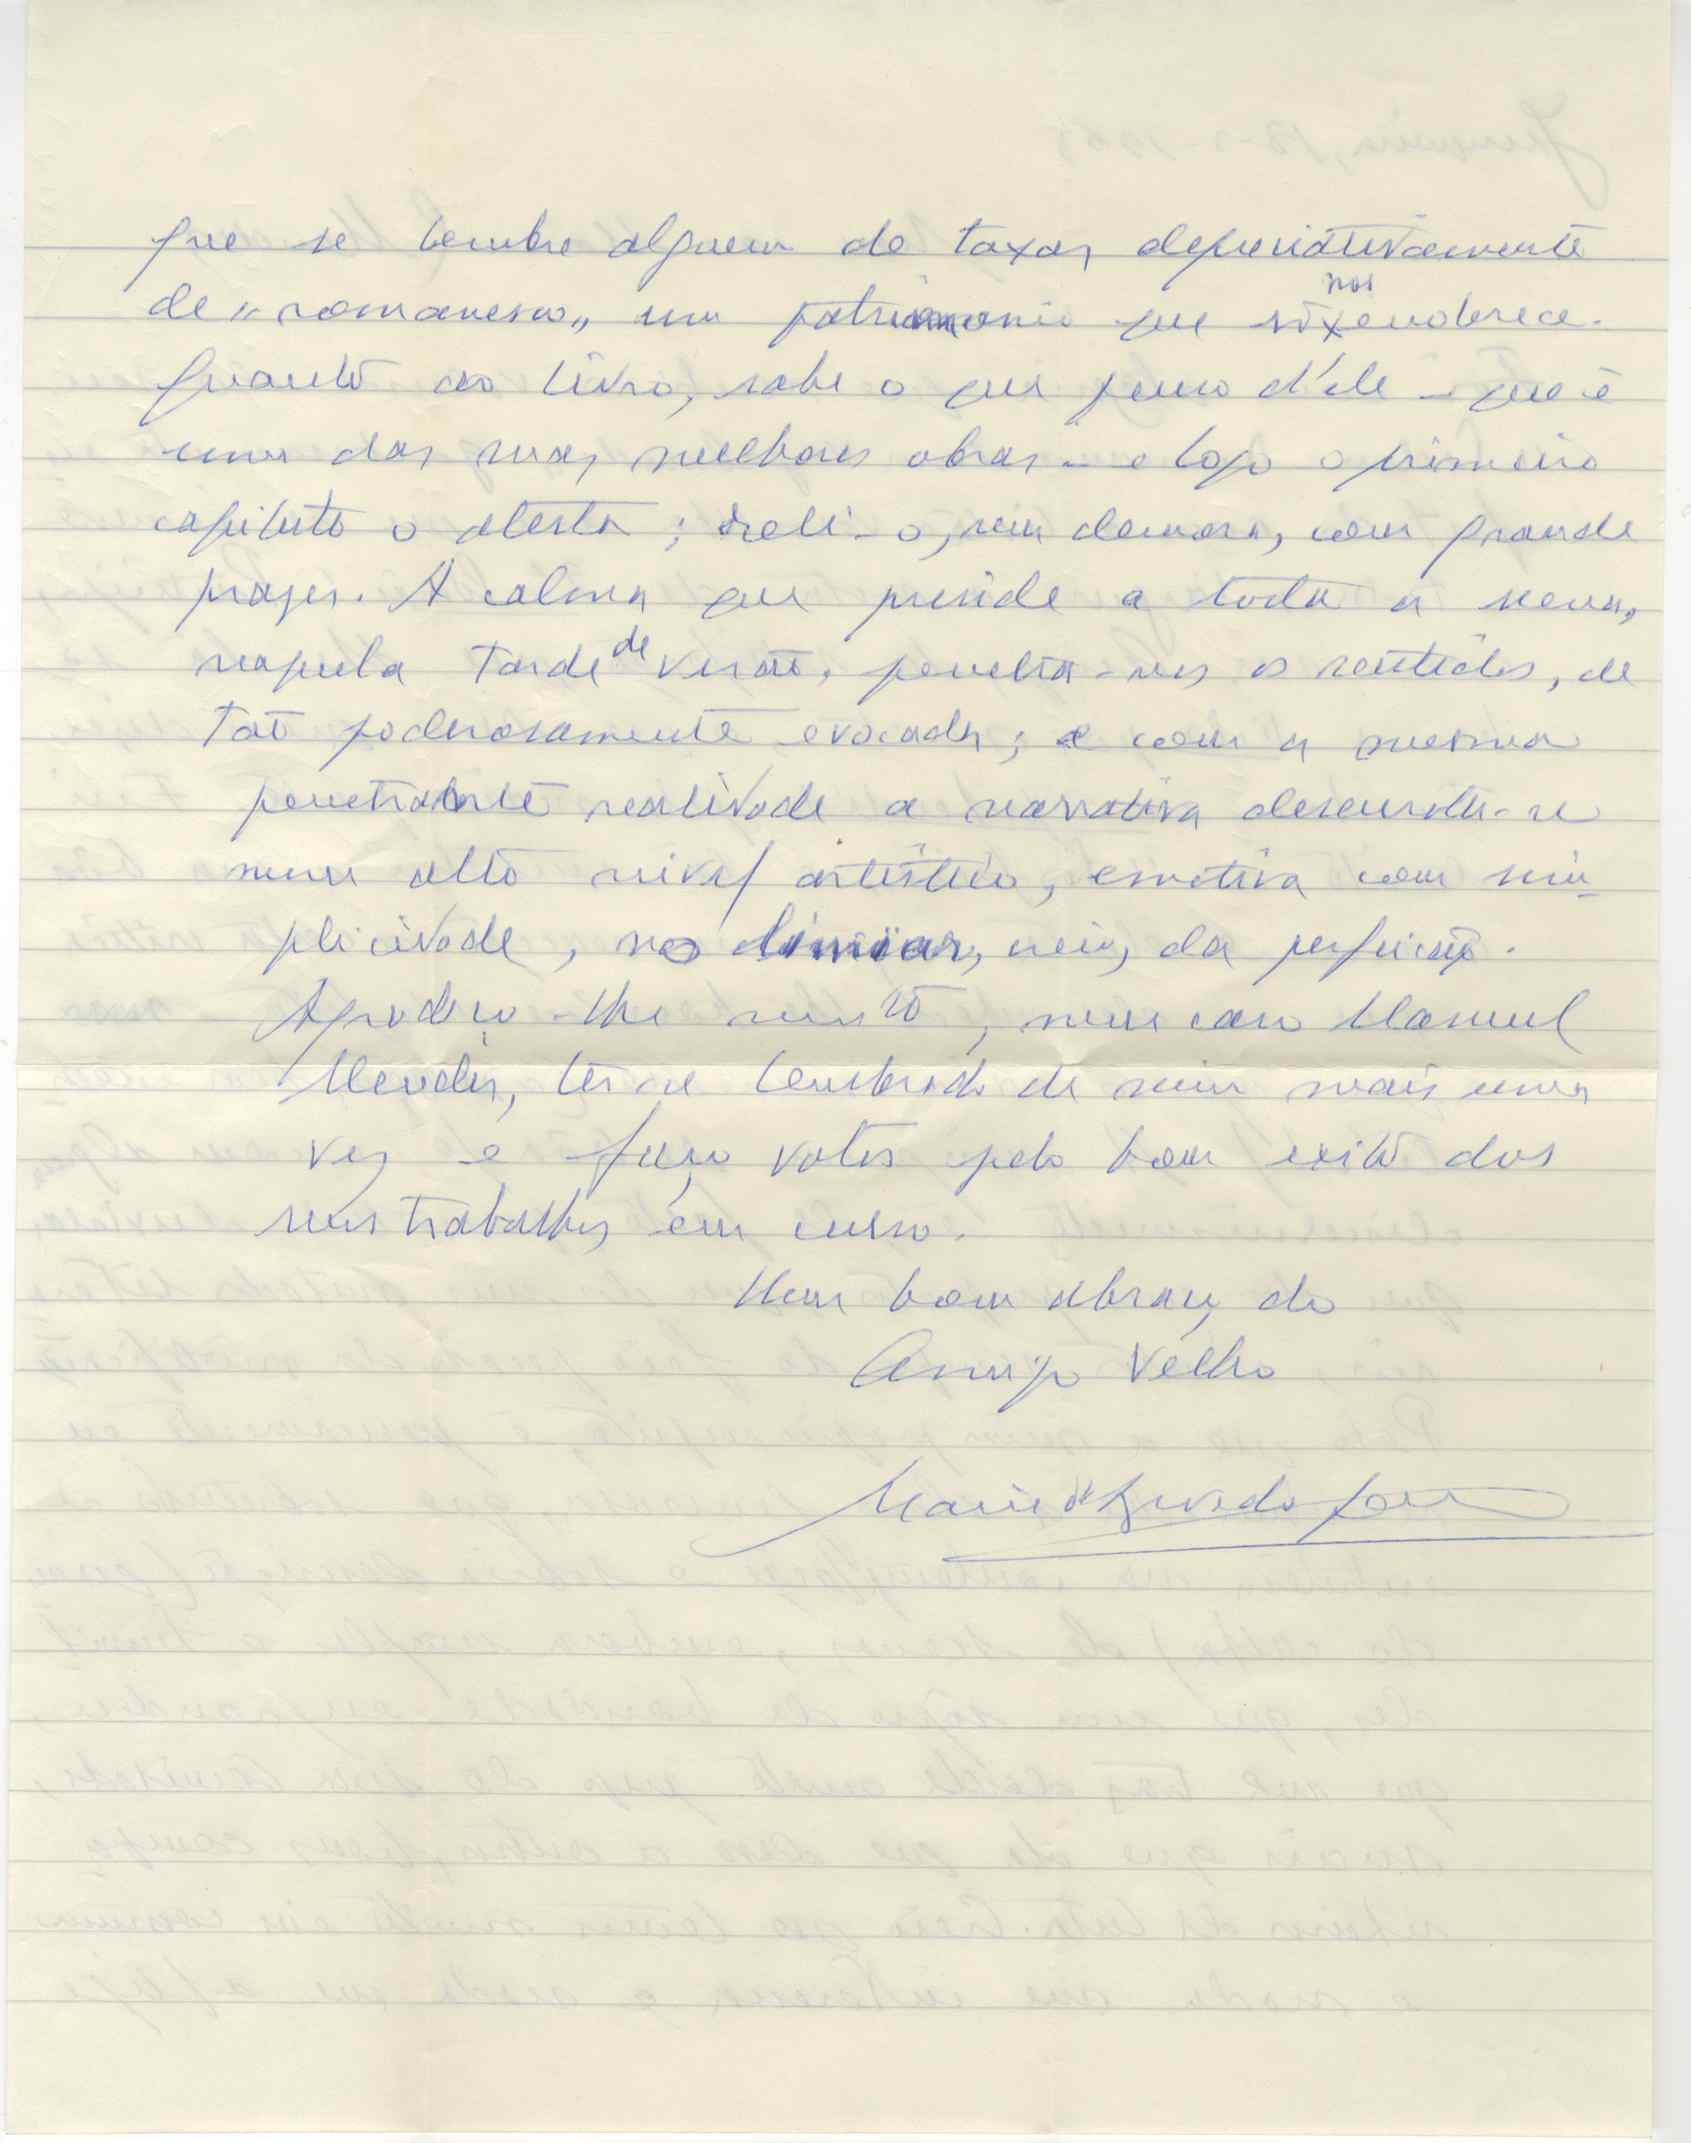 que se lembre alguem de taxar depreciativamente
de "romanesco" um patrimonio que só nos enobrece.
Quanto ao livro, sabe o que penso d'ele – que é
uma das suas melhores obras – e logo o primeiro
capitulo o atesta; reli-o, sem demora, com grande
prazer. A calma que preside a toda a scena,
naquela tarde de verão, penetra-nos os sentidos, de
tão poderosamente evocada; e com a mesma
penetrante realidade a narrativa desenrola-se
num alto nivel artistico, emotiva com sim-
plicidade, no limiar, creio, da perfeição.
Agradeço-lhe muito, meu caro Manuel
Mendes, ter-se lembrado de mim mais uma
vez e faço votos pelo bom exito dos
seus trabalhos em curso.
Um bom abraço do
Amigo Velho
Mario d'Azevedo Gomes